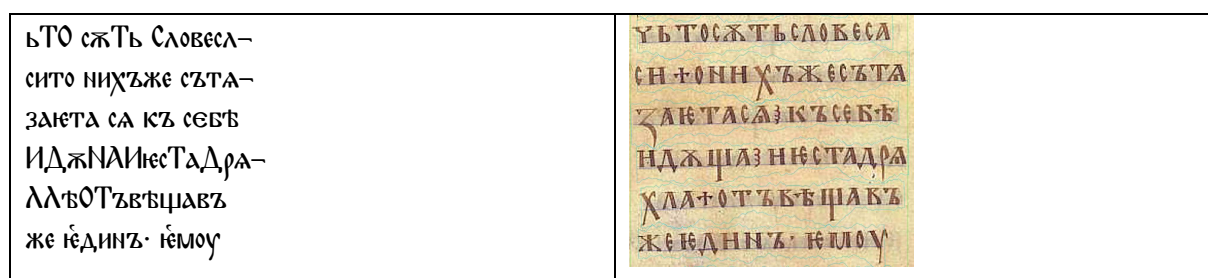 ьТО сѫТь Словесл¬
сито нихъже сътѧ¬
заѥта сѧ къ сєбѣ
ИДѫNАИѥсТаДрѧ¬
ΛΛѣОТъвѣщавъ
же ѥ҅динъ· ѥ҅моу
УЬТОСѪТЬСЛОВЕСА
СИ+ОНИХЪЖЕСЪТѦ
ЗАѤТАСѦ⁏КЪСЕБѢ
ИДѪЩА⁏ИѤСТАДРѦ
ХЛА+ОТЪВѢЩАВЪ
ЖЕѤДИНЪ·ѤМОУ